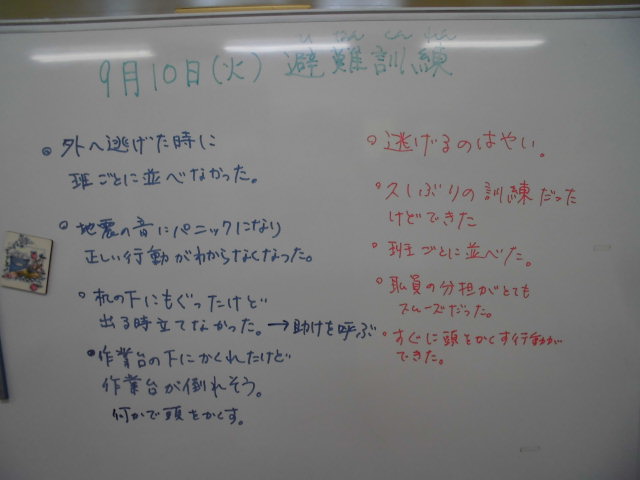 ひなんくんれん
9月10日(火) 避難訓練
◦ 外へ逃げた時に
班ごとに並べなかった。
◦ 地震の音にパニックになり
正しい行動がわからなくなった。
• 机の下にもぐったけど
出る時立てなかった。→助けを呼ぶ
• 作業台の下にかくれたけど
作業台が倒れそう。
何かで頭をかくす。
◦ 逃げるのはやい。
• 久しぶりの訓練だった
けどできた
• 班ごとに並べた。
• 職員の分担がとても
スムーズだった。
• すぐに頭をかくす行動が
できた。